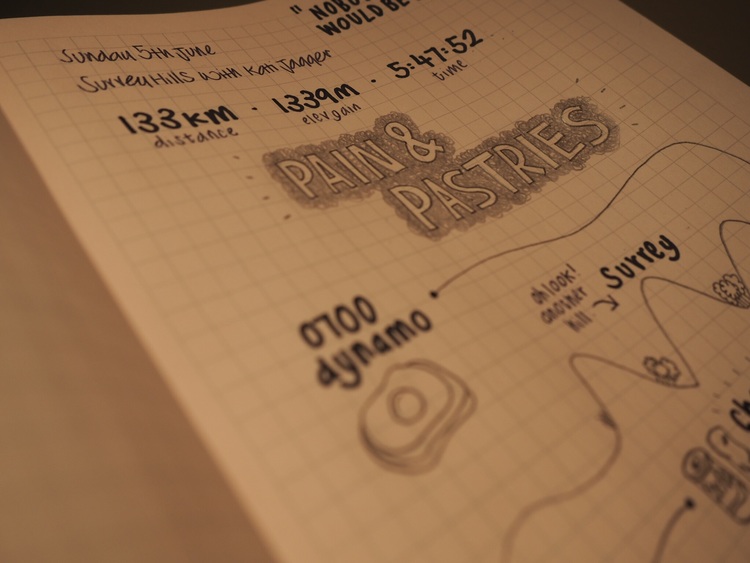 " NOBO
WOULD BE
Sunday 5th June
Surrey Hills with Kati Jagger
133km · 1339m · 5:47:52
distance elev gain time
PAIN &
PASTRIES
0700
dynamo
oh look!
another
hill
Surrey
Ch